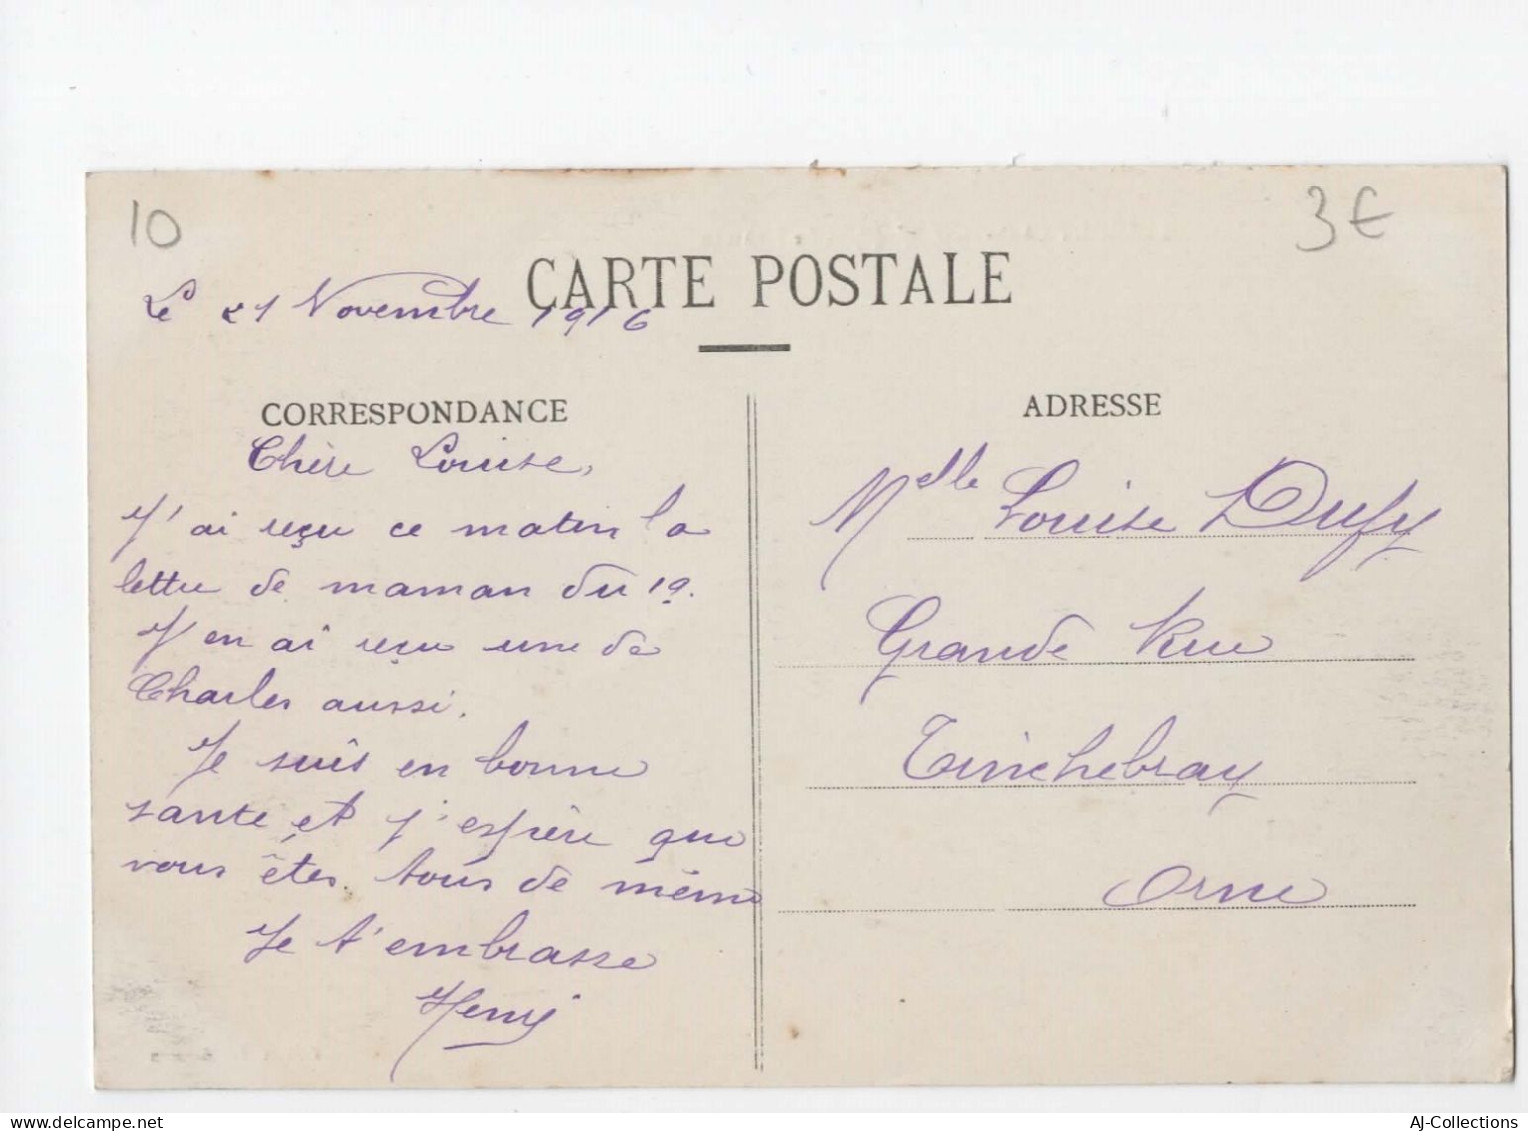 10
3€
CARTE POSTALE
Le 21 Novembre 1916
CORRESPONDANCE
Chère Louise,
J'ai reçu ce matin la
lettre de maman du 19.
J'en ai reçu une de
Charles aussi.
Je suis en bonne
santé et j'espère que
vous êtes tous de même
Je t'embrasse
Henri
ADRESSE
Melle Louise Dufy
Grande Rue
Tinchebray
Orne
delcampe.net
AJ-Collections